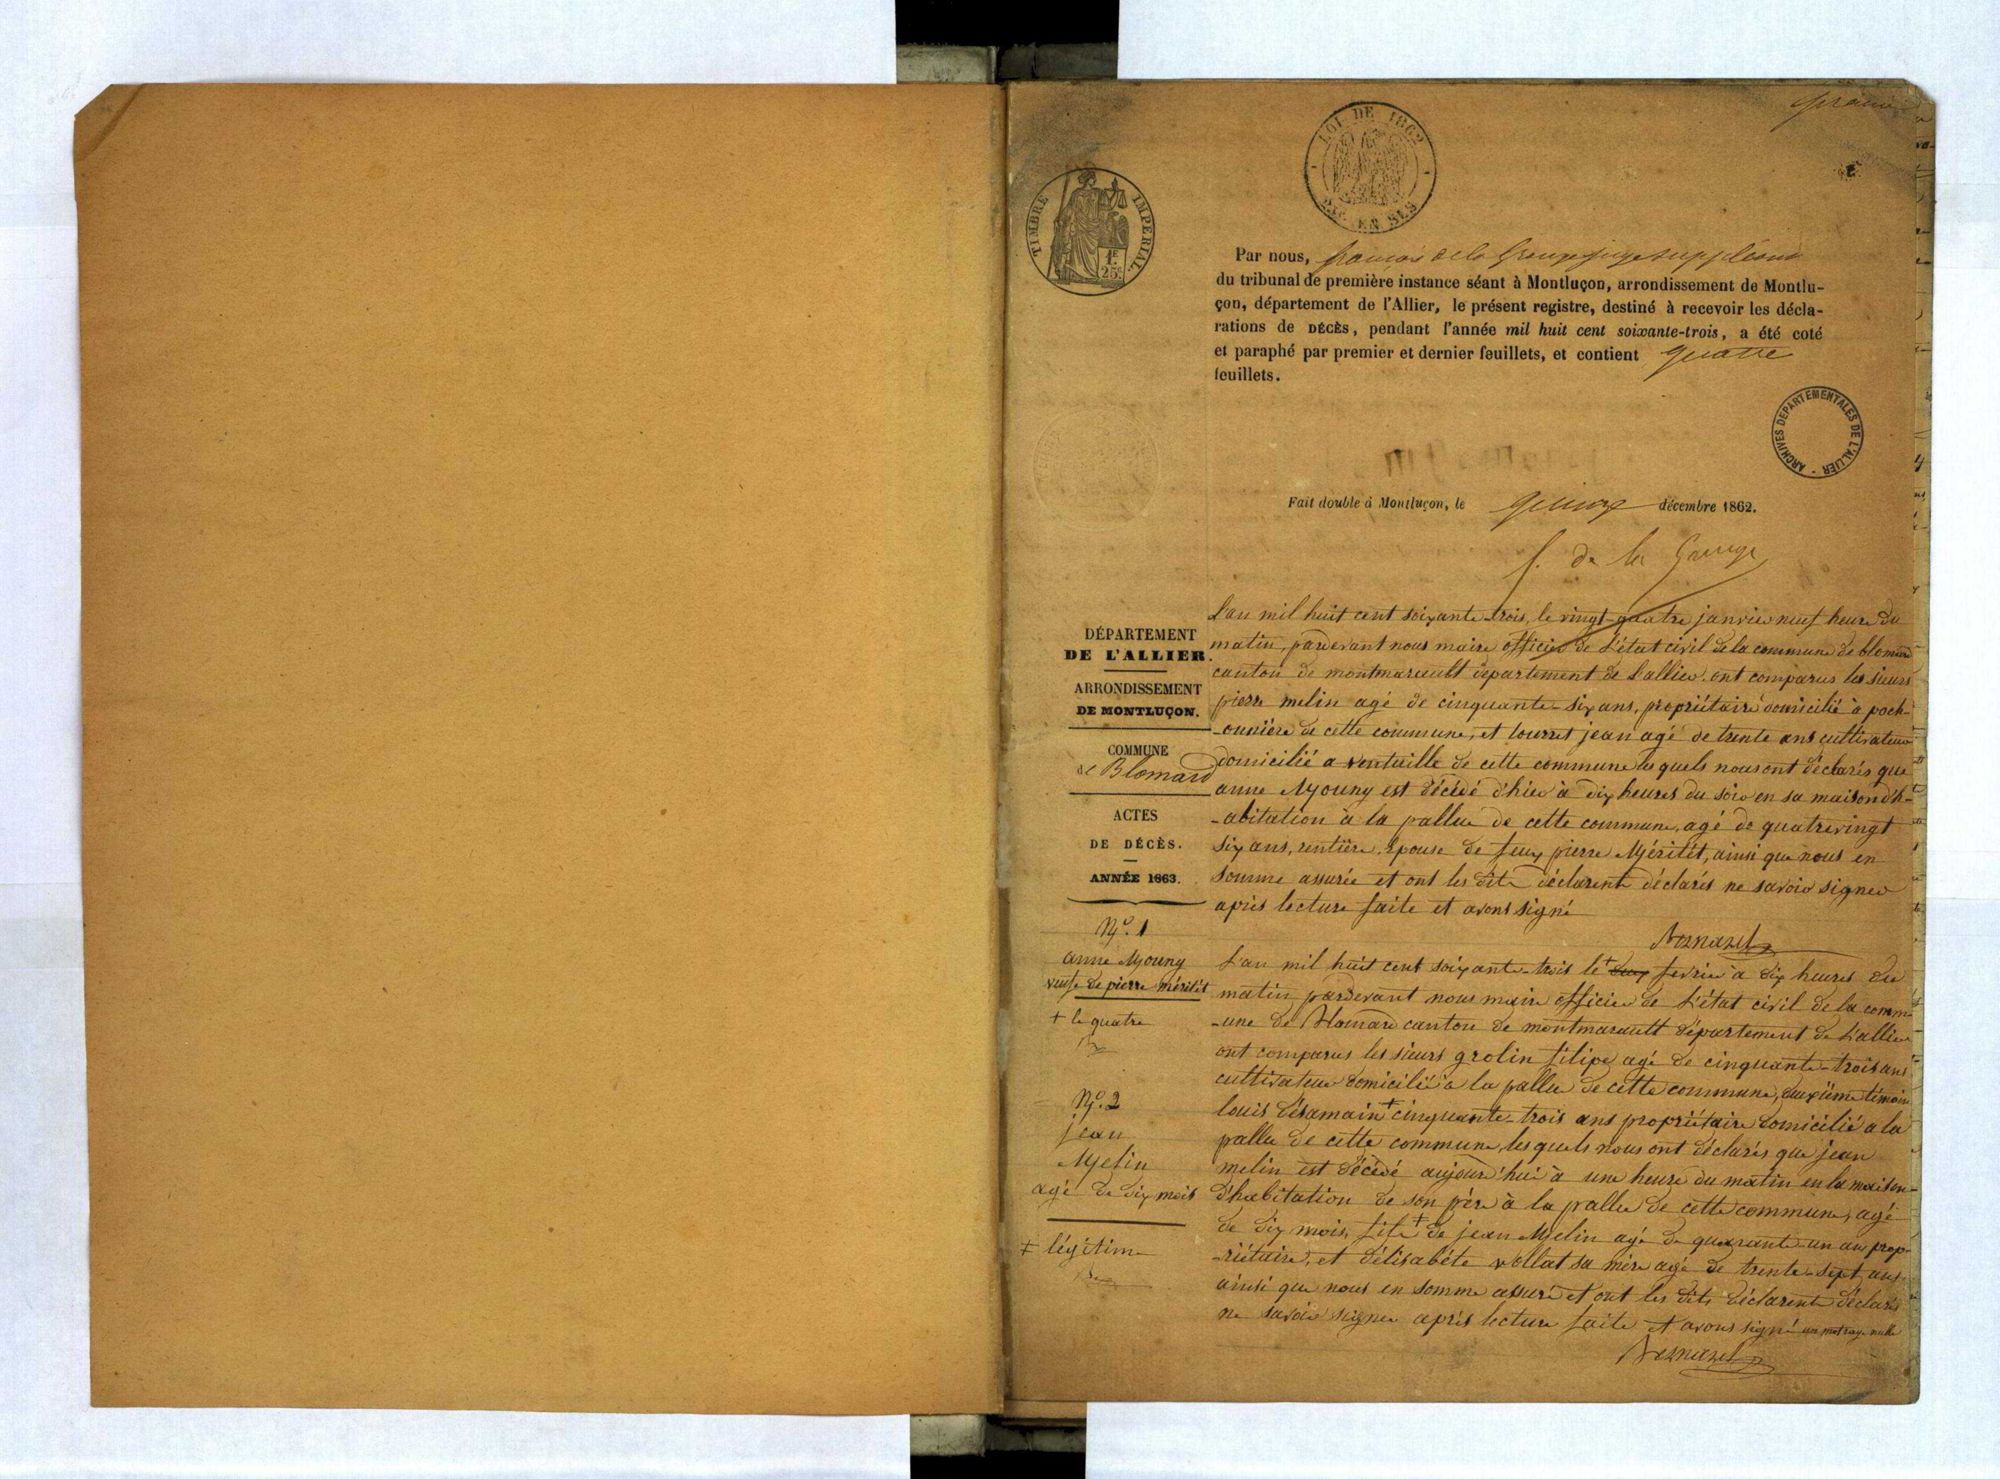 premier
LOI DE 1862
TIMBRE IMPERIAL
1F
25c
Par nous, françois de la Grange juge suppléant
du tribunal de première instance séant à Montluçon, arrondissement de Montlu-
çon, département de l'Allier, le présent registre, destiné à recevoir les décla-
rations de DÉCÈS, pendant l'année mil huit cent soixante-trois, a été coté
et paraphé par premier et dernier feuillets, et contient quatre
feuillets.
ARCHIVES DÉPARTEMENTALES DE L'ALLIER
Fait double à Montluçon, le quinze décembre 1862.
f. de la Grange
DÉPARTEMENT
DE L'ALLIER.
ARRONDISSEMENT
DE MONTLUÇON.
COMMUNE
de Blomard
ACTES
DE DÉCÈS.
ANNÉE 1863.
L'an mil huit cent soixante-trois, le vingt-quatre janvier neuf heure du
matin, pardevant nous maire officier de L'état civil de la commune de blomard
canton de montmarault département de L'allier. ont comparus les sieurs
pierre melin agé de cinquante-six ans, propriétaire domicilié à poch-
-onnière de cette commune, et tourret jean agé de trente ans cultivateur
domicilié a ventuille de cette commune les quels nous ont déclarés que
anne Mouny est décédé d'hier à dix heures du soir en sa maison d'h-
-abitation à la pallue de cette commune, agé de quatrevingt
six ans, rentière. Epouse de feux pierre Méritet, ainsi que nous en
somme assurée et ont les dits déclarent déclarés ne savoir signer
après lecture faite et avons signé
N°. 1
anne Mouny
veuse de pierre méritét
+ le quatre
L'an mil huit cent soixante-trois le + deux fevrier à dix heures du
matin pardevant nous maire officier de L'état civil de la comm-
-une de Blomard canton de montmarault département de L'allier
ont comparus les sieurs grolin filipe agé de cinquante-trois ans
cultivateur domicilié à la pallue de cette commune, deuxième témoin
louis désamain + cinquante-trois ans propriétaire domicilié a la
pallue de cette commune, les quels nous ont déclarés que jean
melin est décédé aujourd'hui à une heure du matin en la maison-
d'habitation de son pèr à la pallue de cette commune, agé
de dix mois, fils ‡ de jean Melin agé de quarante-un an prop-
-riétaire, et d'élisabéte vollat sa mère agé de trente-sept ans
ainsi que nous en somme assuré et ont les dits déclarent déclarés
ne savoir signer après lecture faite et avons signé un mot raye nulle
N°. 2
jean
Melin
agé de dix mois
‡ légitime